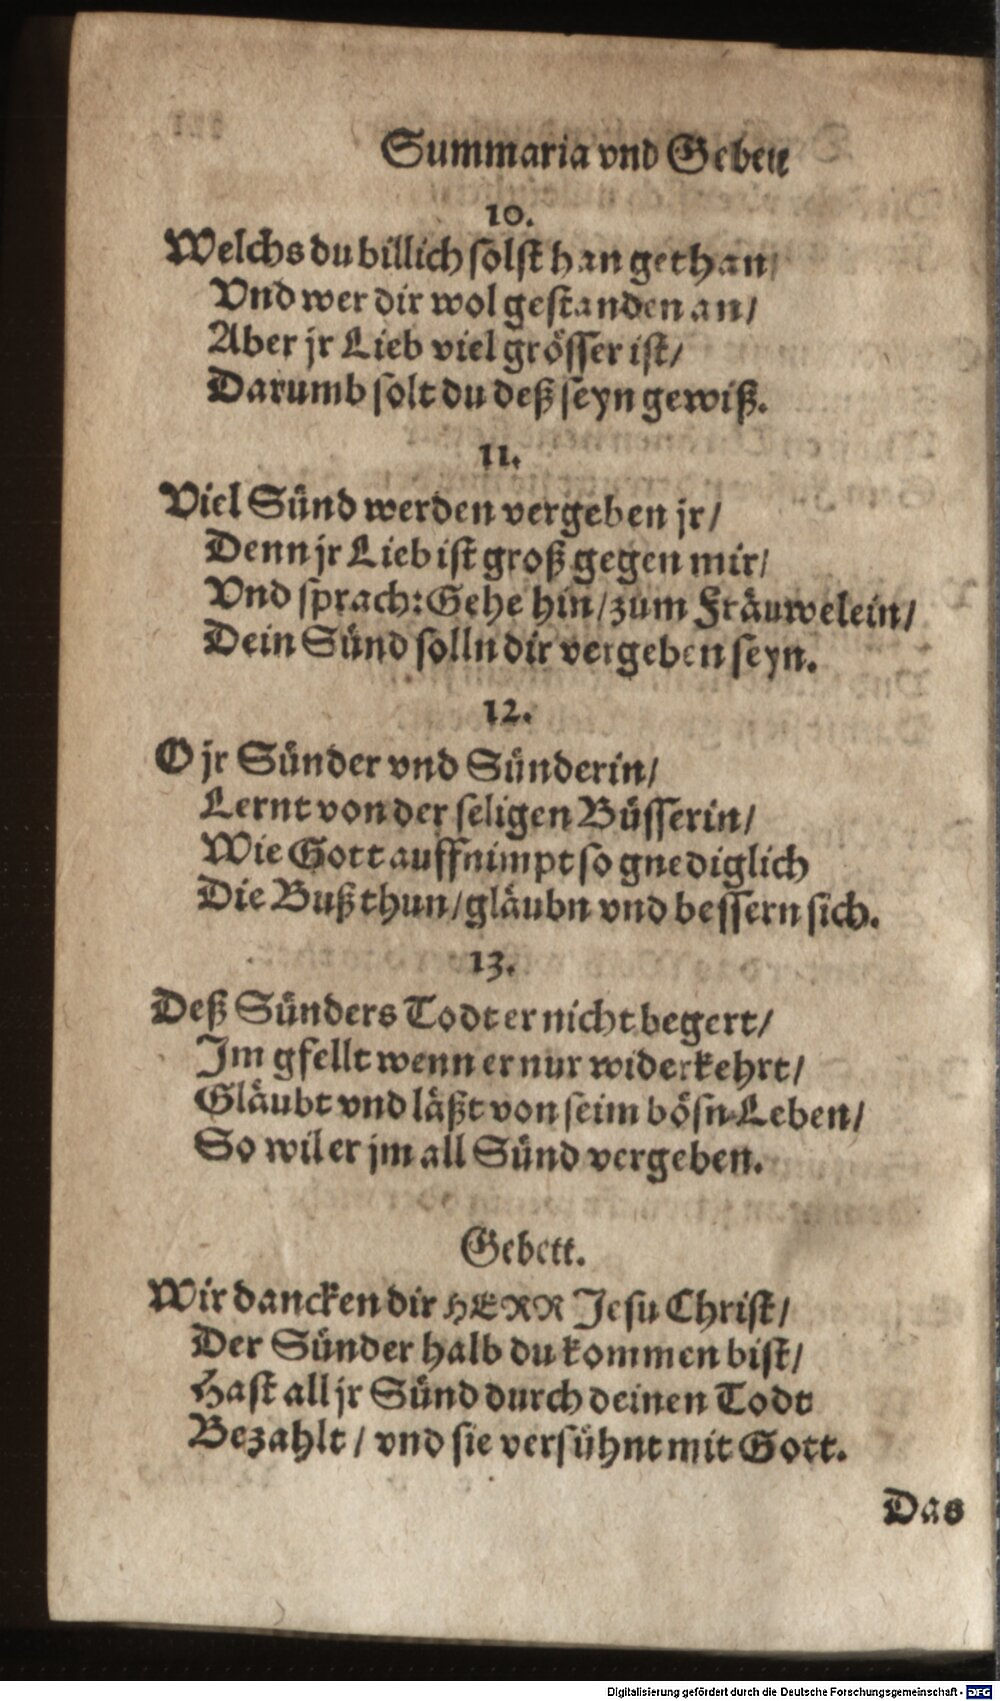 Summaria vnd Gebett
10.
Welchs du billich solst han gethan/
Vnd wer dir wol gestanden an/
Aber jr Lieb viel grösser ist/
Darumb solt du deß seyn gewiß.
11.
Viel Sünd werden vergeben jr/
Denn jr Lieb ist groß gegen mir/
Vnd sprach: Gehe hin/ zum Fräuwelein/
Dein Sünd solln dir vergeben seyn.
12.
O jr Sünder vnd Sünderin/
Lernt von der seligen Büsserin/
Wie Gott auffnimpt so gnediglich
Die Buß thun/ gläubn vnd bessern sich.
13.
Deß Sünders Todt er nicht begert/
Im gfellt wenn er nur widerkehrt/
Gläubt vnd läßt von seim bösn Leben/
So wil er jm all Sünd vergeben.
Gebett.
Wir dancken dir HERR Jesu Christ/
Der Sünder halb du kommen bist/
Hast all jr Sünd durch deinen Todt
Bezahlt/ vnd sie versühnt mit Gott.
Das
Digitalisierung gefördert durch die Deutsche Forschungsgemeinschaft - DFG